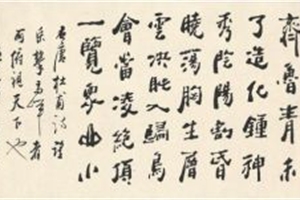 齊魯青未
了造化鍾神
秀陰陽割昏
曉蕩胸生層
雲決眥入歸鳥
會當凌絕頂
一覽衆山小
唐杜甫詩
者
可俯視天下也